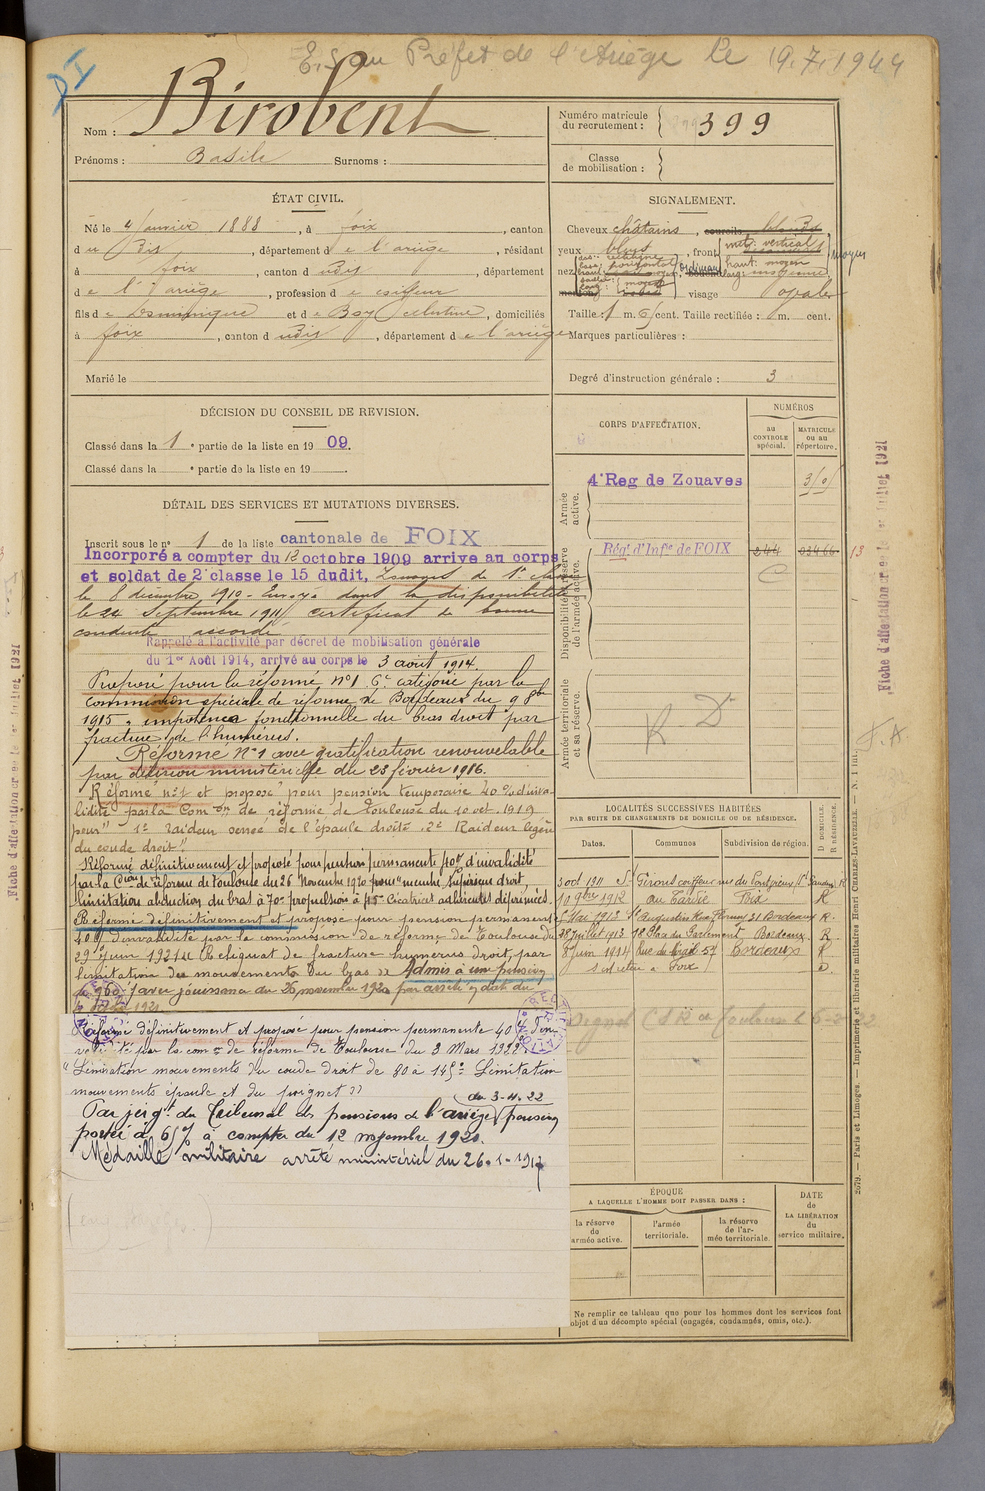 au Préfet de l'Ariège le 19.7.1944
Nom : Birobent
Prénoms : Basile Surnoms :
Numéro matricule
du recrutement : 399
Classe
de mobilisation :
ÉTAT CIVIL.
Né le 4 Janvier 1888, à foix, canton
d u dis, département d e l'ariège, résidant
à foix, canton d udis, département
d e l'ariège, profession d e coiffeur
fils d e Dominique et d e Bay Celestine, domiciliés
à foix, canton d udis, département d e l'ariège
Marié le
SIGNALEMENT.
Cheveux châtains, sourcils blonds
yeux bleus, front
vert: vertical
haut: moyen
nez
visage ovale
Taille : 1 m. 65 cent. Taille rectifiée : m. cent.
Marques particulières :
Degré d'instruction générale : 3
DÉCISION DU CONSEIL DE REVISION.
Classé dans la 1e partie de la liste en 1909.
Classé dans la e partie de la liste en 19 .
CORPS D'AFFECTATION.
NUMÉROS
au
CONTROLE
spécial.
MATRICULE
ou au
répertoire.
Armée
active.
4e Reg de Zouaves
Disponibilité et réserve
de l'armée active.
Régt d'Infie de FOIX 244 13
Armée territoriale
et sa réserve.
R D
F.A.
DÉTAIL DES SERVICES ET MUTATIONS DIVERSES.
Inscrit sous le no 1 de la liste cantonale de FOIX
Incorporé a compter du 12 octobre 1909 arrive au corps
et soldat de 2e classe le 15 dudit, Zouaves de 1e classe
le 8 décembre 1910 - Envoyé dans la disponibilité
le 24 Septembre 1911 certificat de bonne
conduite accordé.
Rappelé à l'activité par décret de mobilisation générale
du 1er Août 1914, arrivé au corps le 3 août 1914.
Proposé pour la réforme no 1 6e catégorie par la
commission spéciale de réforme de Bordeaux du 9 8bre
1915 "impotence fonctionnelle du bras droit par
fracture de l'humérus.
Réformé No 1 avec gratification renouvelable
par décision ministérielle du 23 février 1916.
Réformé no 1 et proposé pour pension temporaire 40 % d'inva-
lidité par la Comon de réforme de Toulouse du 10 oct. 1919
pour "1e raideur serrée de l'épaule droite. 2e Raideur légère
du coude droit."
Réformé définitivement et proposé pour pension permanente 40% d'invalidité
par la Cion de réforme de Toulouse du 26 Novembre 1920 pour "membre supérieur droit,
limitation abduction du bras à 70° propulsion à 45° Cicatrices adhérentes déprimées.
Réformé définitivement et proposé pour pension permanente
40% d'invalidité par la commission de réforme de Toulouse du
29 juin 1921 "Reliquat de fracture humérus droit, par
limitation des mouvements du bras" Admis à une pension
de 960 f avec jouissance du 26 novembre 1920 par arrêté en date du
Réformé définitivement et proposé pour pension permanente 40 % d'in-
validité par la comon de réforme de Toulouse du 3 Mars 1922
"Limitation mouvements du coude droit de 80 à 145° Limitation
mouvements épaule et du poignet"
du 3-4-22
Par jeigt du Tribunal des pensions de l'ariège pension
portée à 65% à compter du 12 novembre 1920.
Médaille militaire arrêté ministériel du 26-1-1917
LOCALITÉS SUCCESSIVES HABITÉES
PAR SUITE DE CHANGEMENTS DE DOMICILE OU DE RÉSIDENCE.
Dates. Communes Subdivision de région.
D DOMICILE.
R RÉSIDENCE.
3 oct 1911 R
10 9bre 1912 Foix R
5 Mai 1913 St Augustin 31 Bordeaux R.
28 Juillet 1913 18 Place du Parlement Bordeaux. R
8 juin 1914 57 Bordeaux R
s'est retiré à Foix D
ÉPOQUE
A LAQUELLE L'HOMME DOIT PASSER DANS :
la réserve
de
l'armée active.
l'armée
territoriale.
la réserve
de l'ar-
mée territoriale.
DATE
de
LA LIBÉRATION
du
service militaire.
Ne remplir ce tableau que pour les hommes dont les services font
objet d'un décompte spécial (engagés, condamnés, omis, etc.).
2679. — Paris et Limoges. — Imprimerie et librairie militaires Henri CHARLES-LAVAUZELLE.
Fiche d'affectation créée le 1er Juillet 1921
Fiche d'affectation créée le 1er Juillet 1921